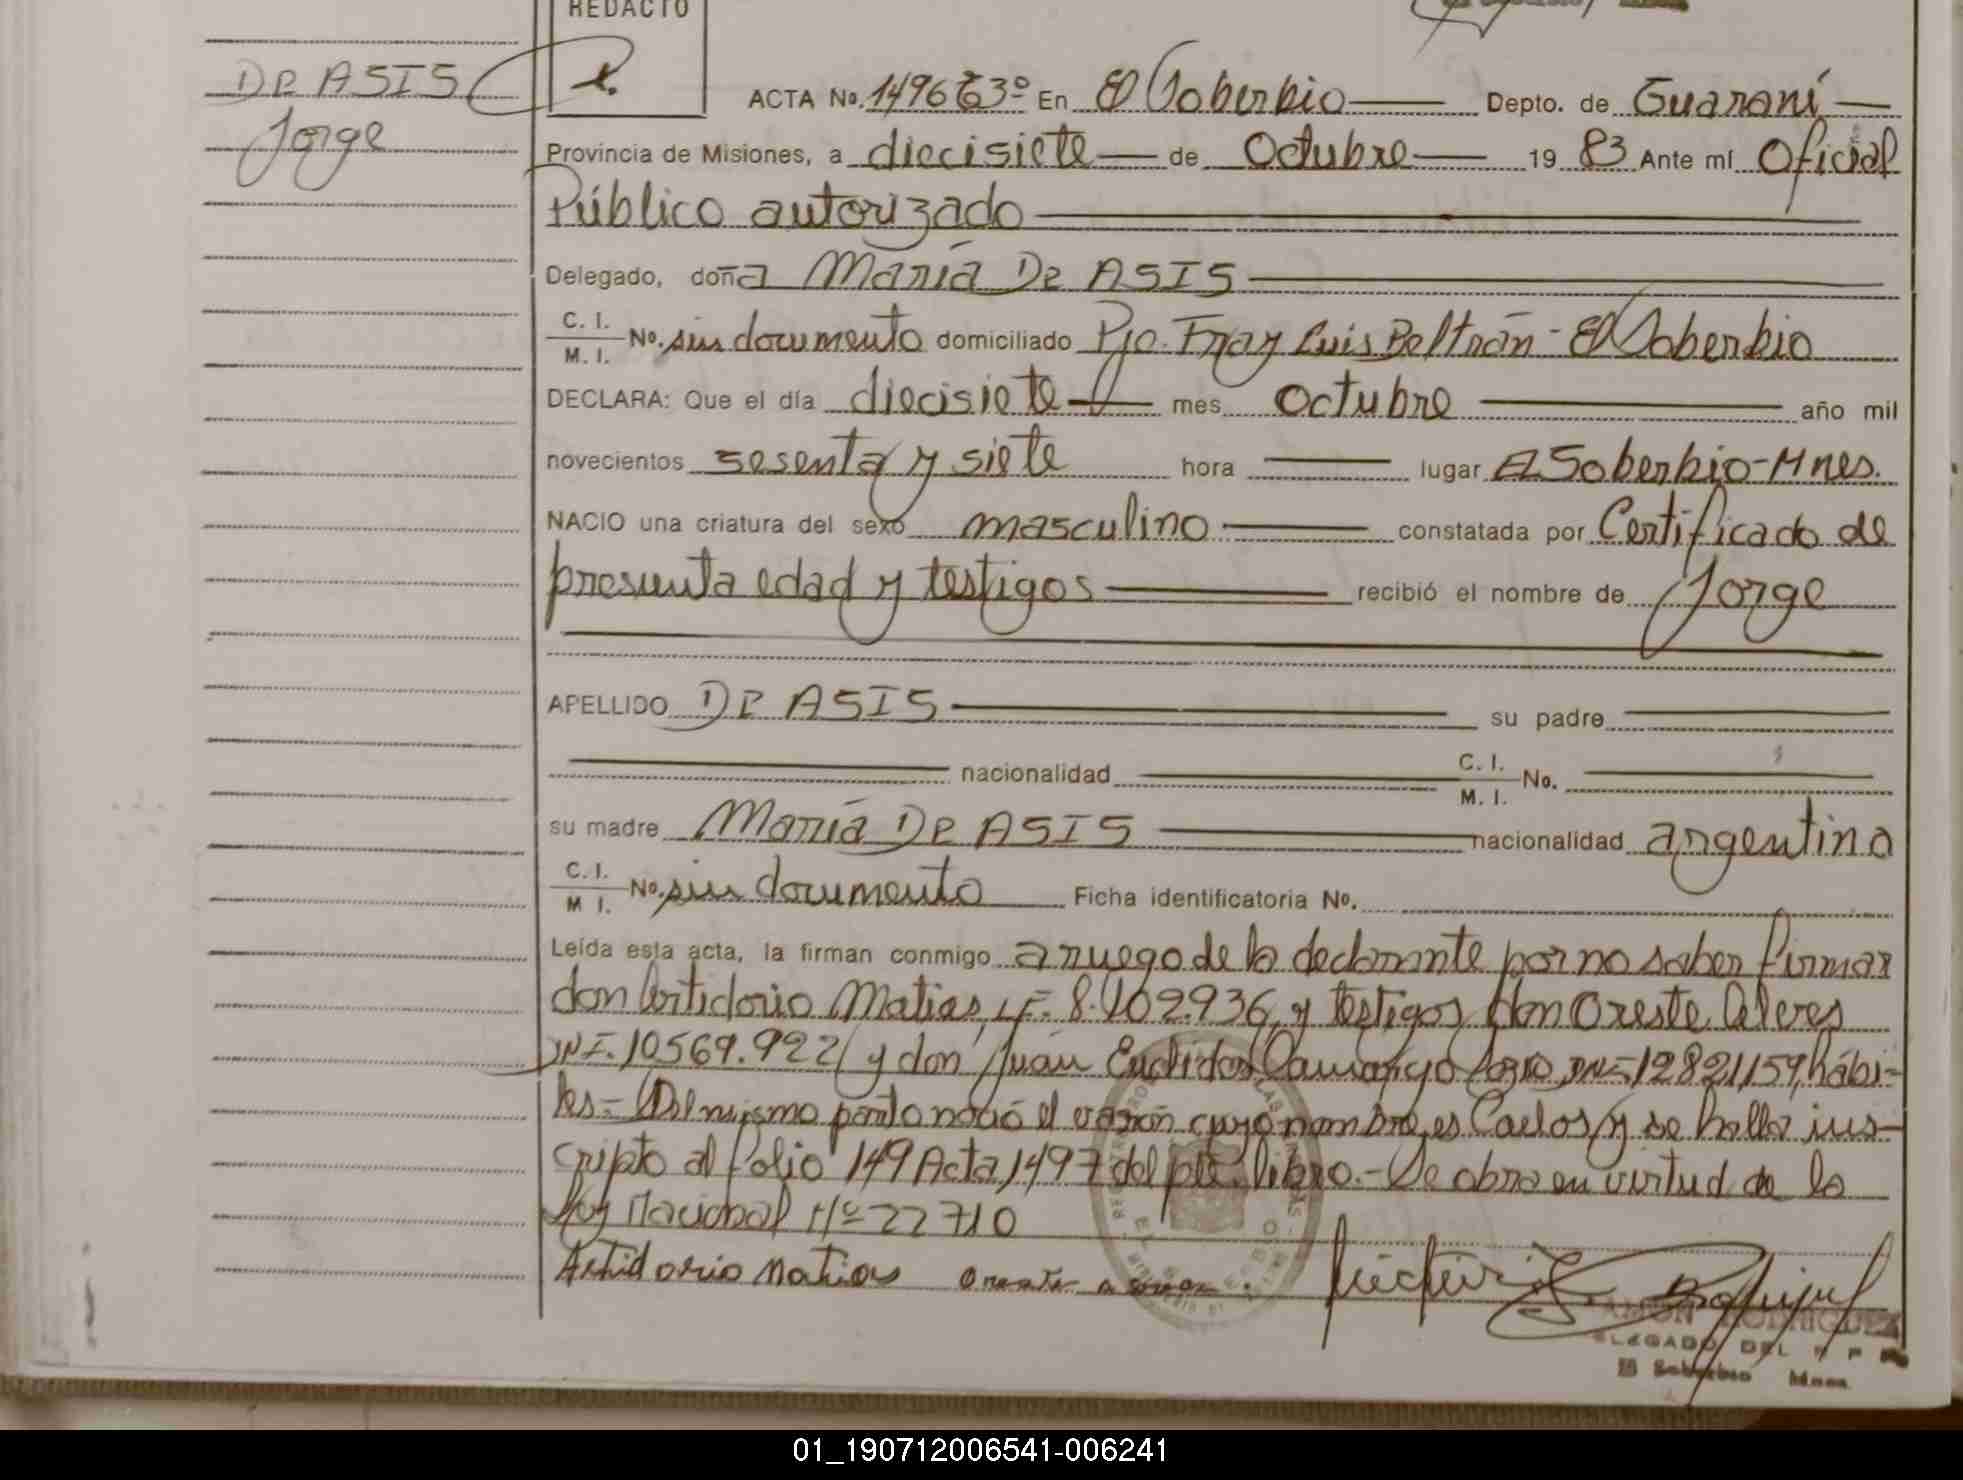 REDACTO
DE ASIS
Jorge
ACTA No. 1496 T3º En El Soberbio Depto. de Guaraní
Provincia de Misiones, a diecisiete de Octubre 19 83 Ante mí Oficial
Público autorizado
Delegado, doña María De ASIS
C. I.
M. I. No. sin documento domiciliado Pje. Fray Luis Beltrán - El Soberbio
DECLARA: Que el día diecisiete mes octubre año mil
novecientos sesenta y siete hora lugar El Soberbio - Mnes.
NACIO una criatura del sexo masculino constatada por Certificado de
presunta edad y testigos recibió el nombre de Jorge
APELLIDO DE ASIS su padre
nacionalidad C. I.
M. I. No.
su madre María DE ASIS nacionalidad argentina
C. I.
M I. No. sin documento Ficha identificatoria No.
Leída esta acta, la firman conmigo a ruego de la declarante por no saber firmar
don Artidorio Matias, LE. 8.402.936, y testigos don Oreste
DNI. 10569.922 y don Juan Euclides Camargo DNI 12821159, hábi-
les= Del mismo parto nació el varón cuyo nombre es Carlos y se halla ins-
cripto al folio 149 Acta 1497 del pte. libro.- Se obra en virtud de la
Ley Nacional Nº 22710
Artidorio Matias
RAMON RODRIGUEZ
DELEGADO DEL R P
El Soberbio Mnes.
01_190712006541-006241